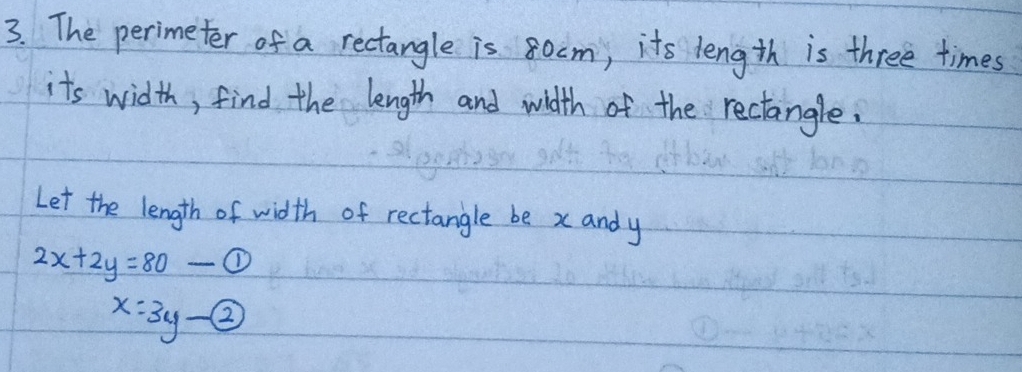 3. The perimeter of a rectangle is 80cm, its length is three times
its width, find the length and width of the rectangle.
Let the length of width of rectangle be x and y
2x+2y=80 — ①
x=3y — ②